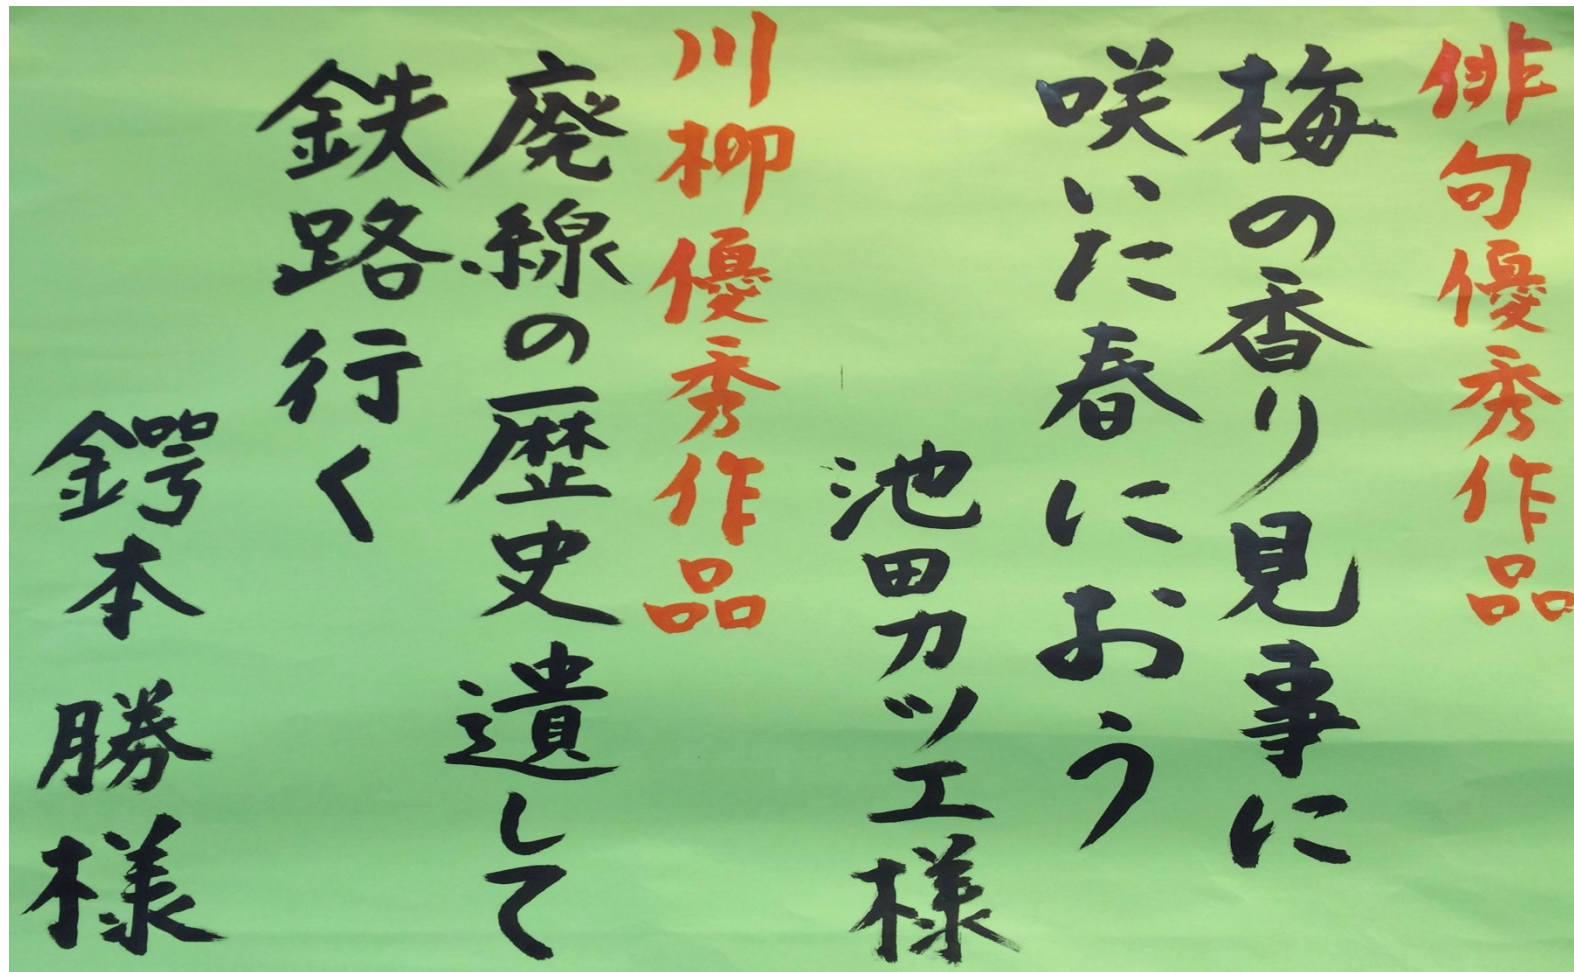 俳句優秀作品
梅の香り見事に
咲いた春におう
池田カツエ様
川柳優秀作品
廃線の歴史遺して
鉄路行く
鍔本 勝様